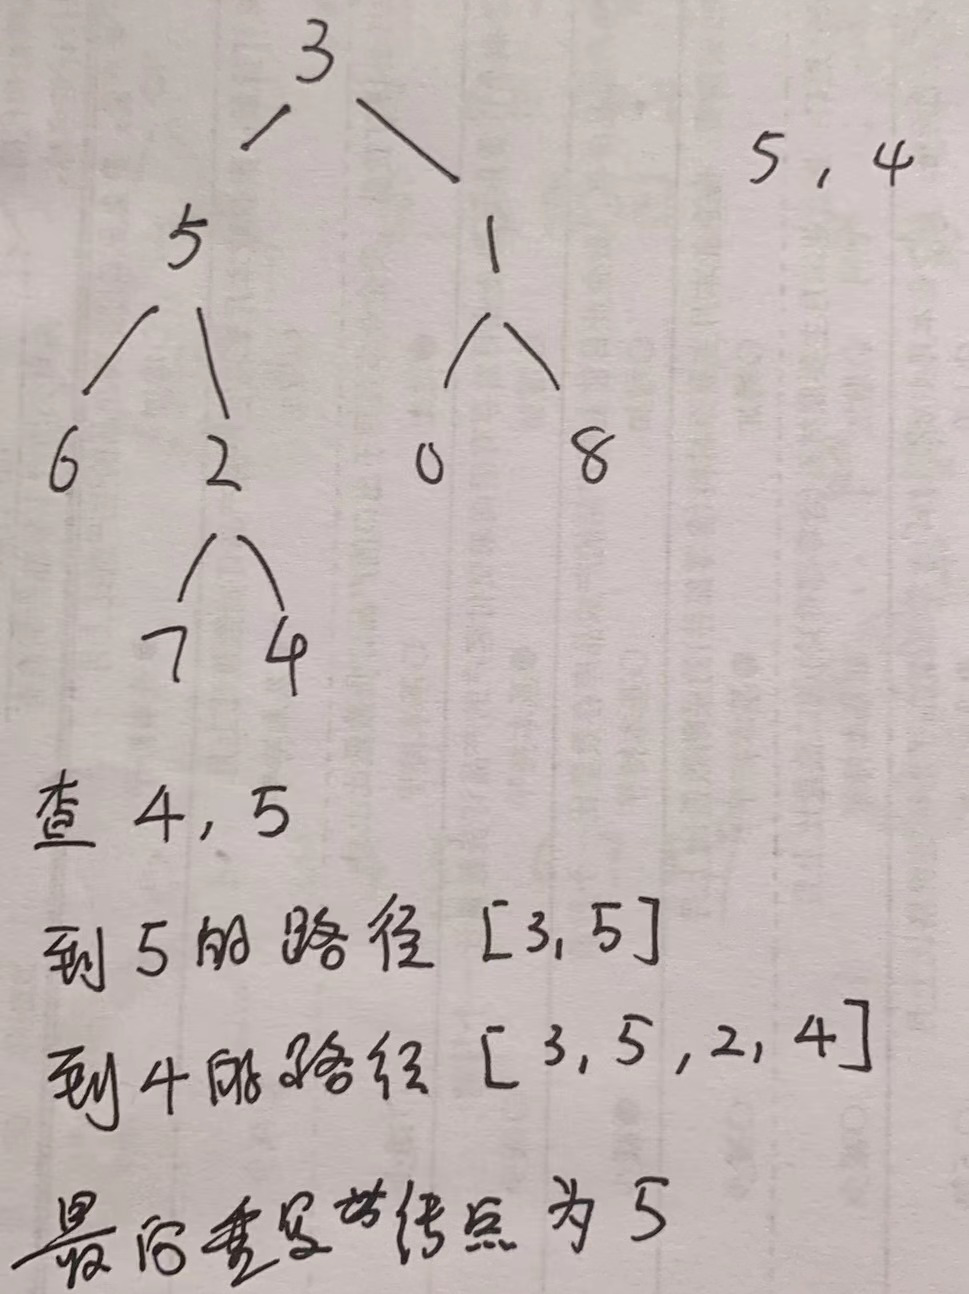 3
5 , 4
5 1
6 2 0 8
7 4
查 4, 5
到 5 的 路 径 [3, 5]
到 4 的 路 径 [3, 5, 2, 4]
最 后 重 点 为 5